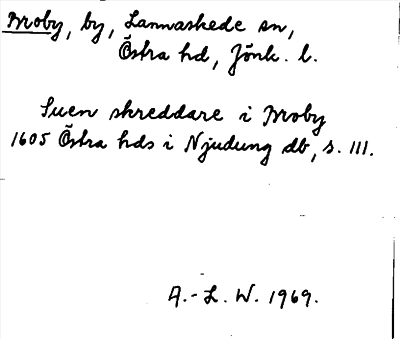 Moby, by, Lannaskede sn,
Östra hd, Jönk. l.
Suen skreddare i Moby
1605 Östra hds i Njudung db, s. 111.
A.-L. W. 1969.